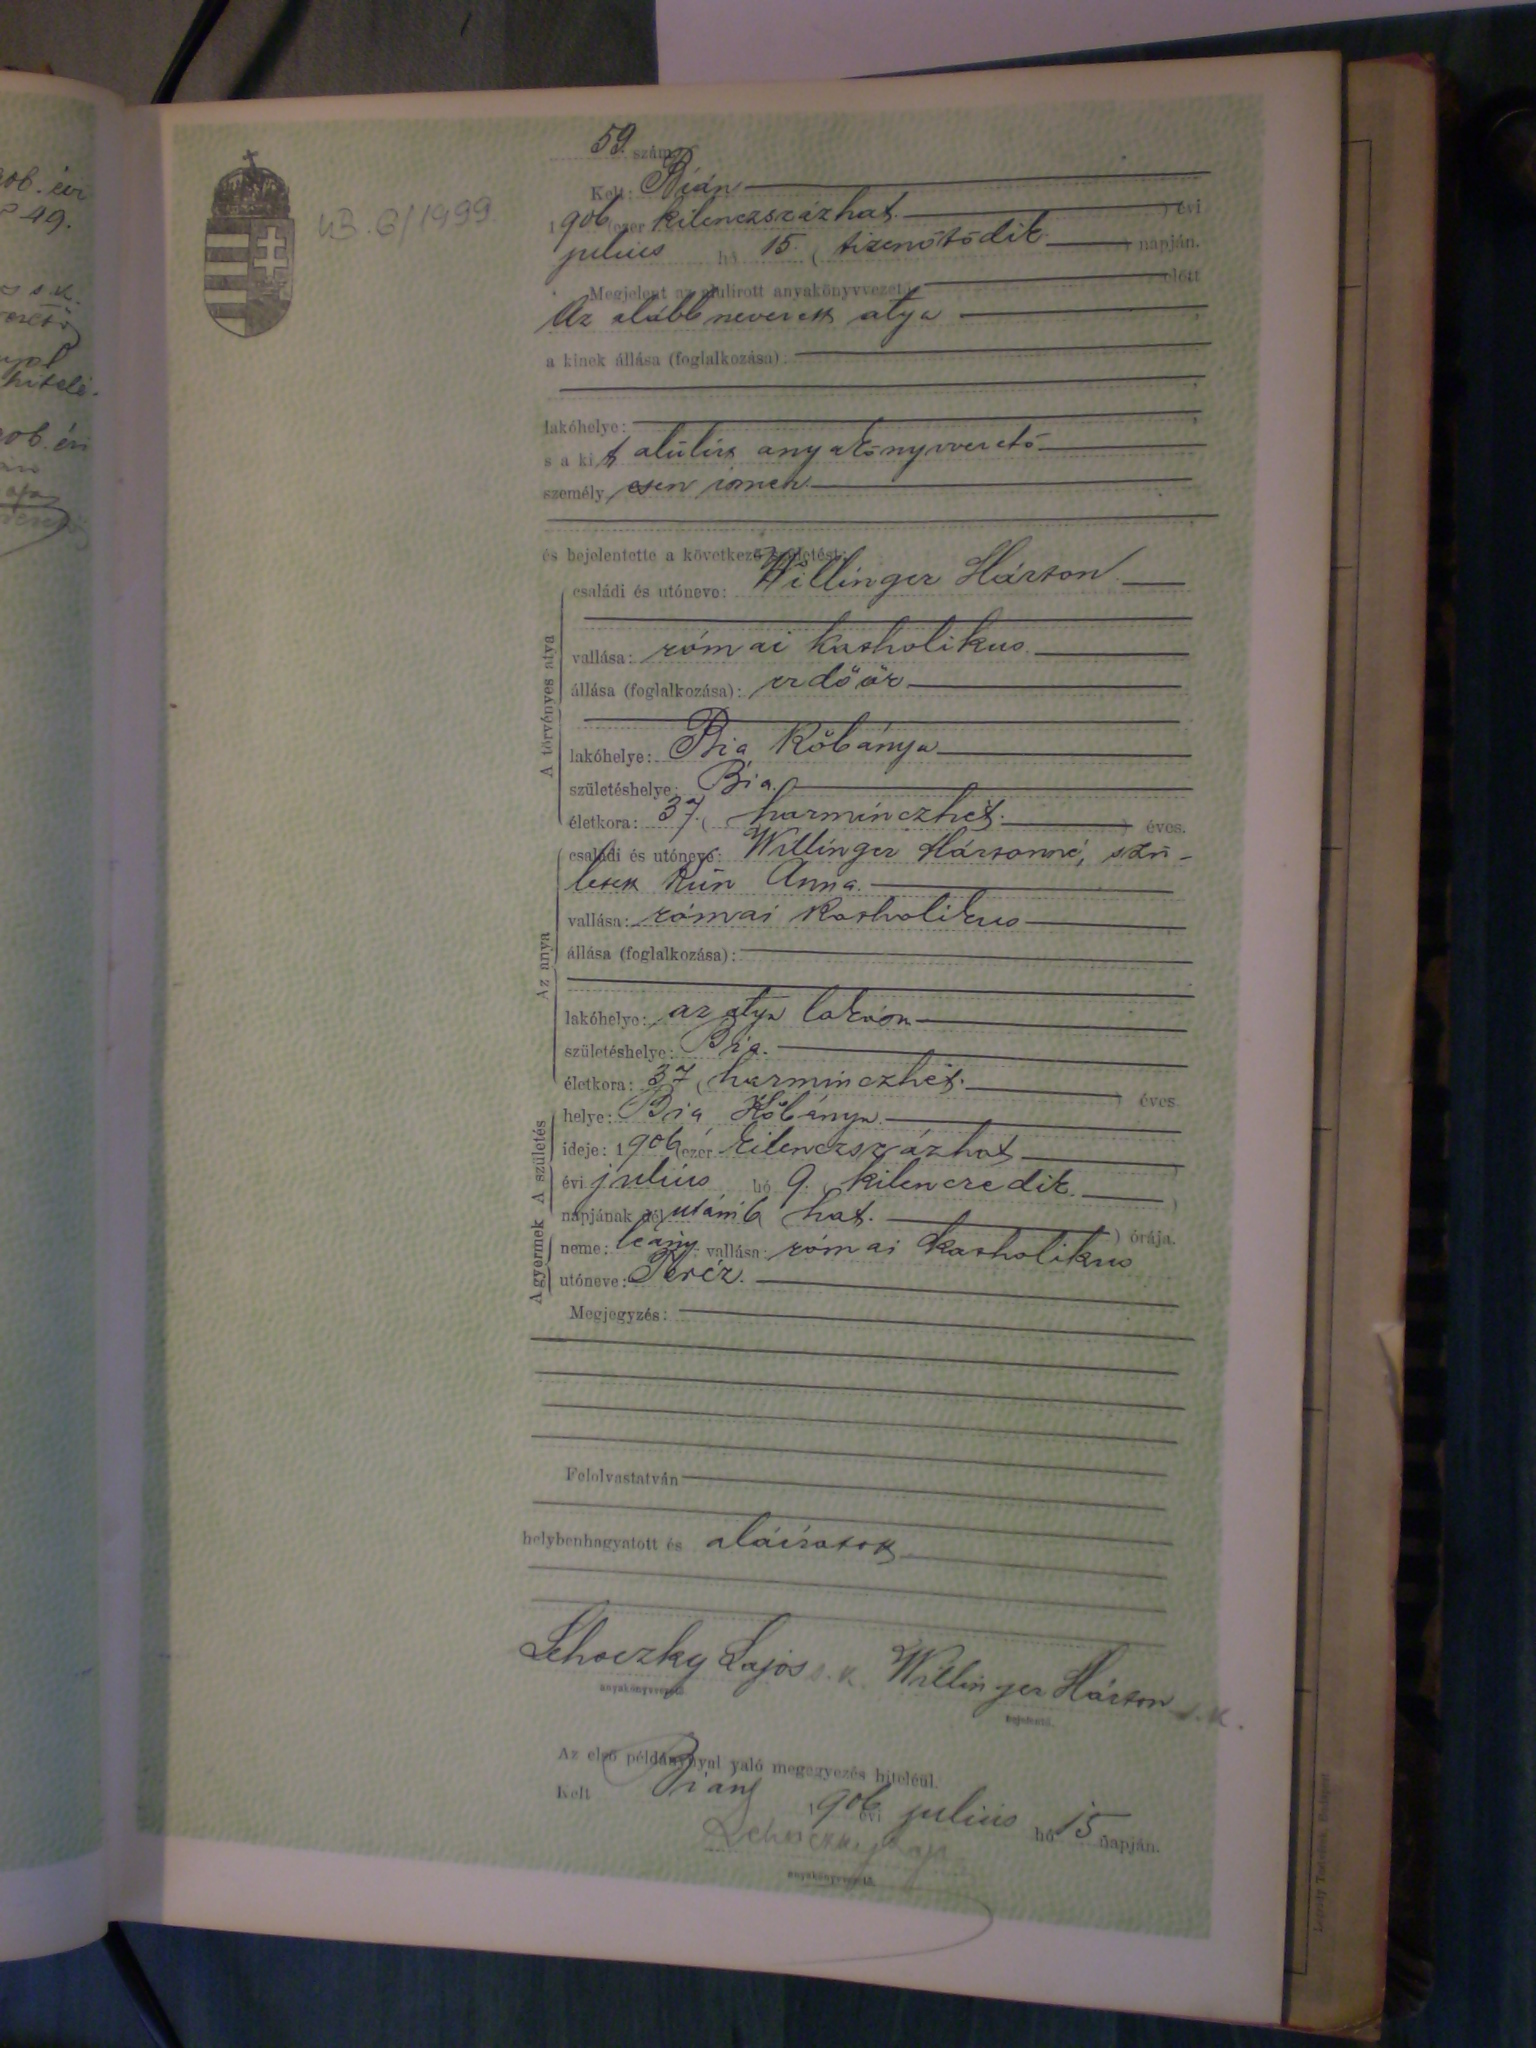 59. szám
Kelt: Bián
1906 (ezer kilenczszázhat.) évi
julius hó 15. (tizenötödik) napján.
Megjelent az alulírott anyakönyvvezető előtt
Az alább nevezett atya
a kinek állása (foglalkozása):
lakóhelye:
s a kit alúlirt anyakönyvvezető
személyesen ismer.
és bejelentette a következő születést:
A törvényes atya
családi és utóneve: Willinger Márton.
vallása: római katholikus.
állása (foglalkozása): erdőőr
lakóhelye: Bia Kőbánya
születéshelye: Bia.
életkora: 37. (harminczhét.) éves.
Az anya
családi és utóneve: Willinger Mártonné, szü-
letett Kún Anna.
vallása: római katholikus
állása (foglalkozása):
lakóhelye: az atya lakásán
születéshelye: Bia.
életkora: 37 (harminczhét.) éves
A születés
helye: Bia Kőbánya.
ideje: 1906 (ezer kilenczszázhat)
évi julius hó 9. (kilenczedik.)
napjának dél utáni 6 (hat.) órája.
A gyermek
neme: leány. vallása: római katholikus
utóneve: Teréz.
Megjegyzés:
Felolvastatván
helybenhagyatott és aláiratott
Schoczky Lajos s. k. Willinger Márton s. k.
anyakönyvvezető. bejelentő.
Az első példánynyal való megegyezés hiteléül.
Kelt Bián, 1906 évi julius hó 15 napján.
anyakönyvvezető.
6/1999
906. évi
49.
s. k.
906. évi